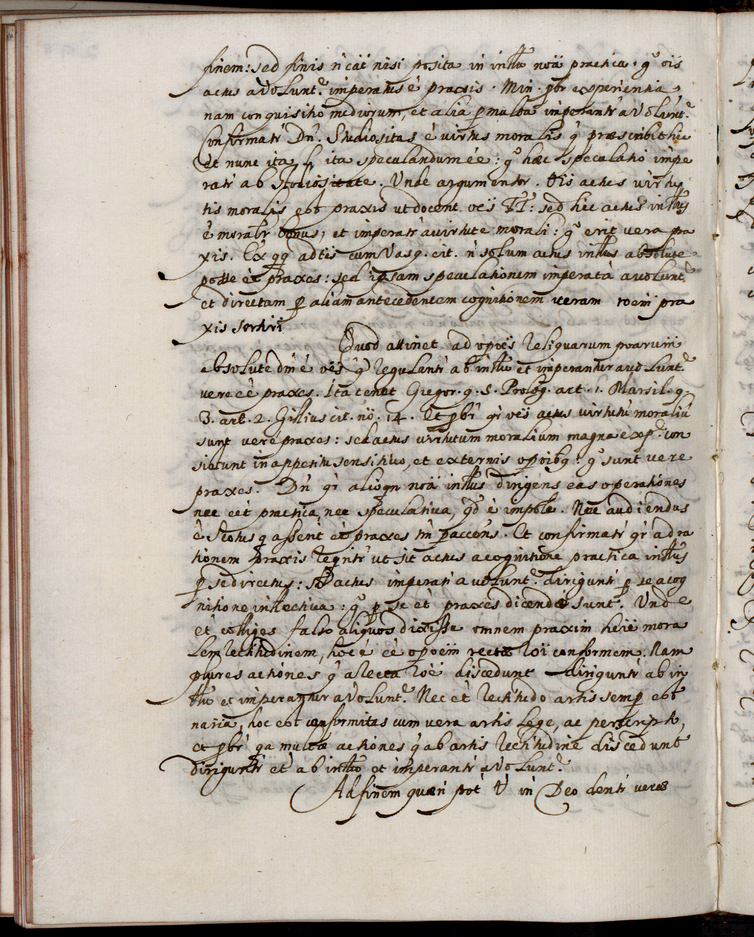 finem: sed finis n̄ cāt nisi posita in intu noã practica. gͦ ois
actus a volunt.ᵉ imperatus ē praxis. Min. pbr experientia
nam conquisitio mediorum, et alia p multa imperantr a volunt.ᵉ
Confirmatr Dnr. Studiositas ē virtus moralis q̄ præscribit hic
et nunc ita, l ita speculandum ēē: gͦ hæc speculatio impe
ratr ab studiositate. Unde argumentr. Ois actus virtu
tis moralis est praxis ut docent oēs : sed hic actus intus
ē moralr bonus, et imperatr a virtute morali: gͦ erit vera pra
xis. Ex qq adtis cum Vasq. cit. n̄ solum actus intus absolute
posse ēē praxes: sed ipsam speculationem imperatã a volunt.ᵉ
et directam p aliam antecedentem cognitionem veram roem pra
xis sortiri
Quod attinet ad opoēs reliquarum poarum
absolute dm ē oēs q̄ regulantr ab intu et imperantur a volunt.ᵉ
vere ēē praxes. Ita tenet Gregor. q. 5. Prolog. art. 1. Marsil. q.
3. art. 2. Gillius cit. nō. 14. Et pbr qr oēs actus virtutũ moraliũ
sunt vere praxes: sed actus virtutum moralium magna ex p.ᵉ con
sistunt in appetitu sensitivo, et externis opoibq gͦ sunt vere
praxes. Dn qr alioqn noã intus dirigens eas operationes
nec eēt practica, nec speculativa, qd ē impole. Nec audiendus
ē Scotus q assent ēē praxes tm p accens. Et confirmatr qr ad ra
tionem praxis reqritr ut sit actus a cognitione practica intus
p se directus: sed actus imperati a volunt.ᵉ diriguntr p se a cog
nitione intectiva: gͦ p se ēt praxes dicendæ sunt. Unde
et colliges falso aliquos dixisse omnem praxim hēre mora
lem rectitudinem, hoc ē ēē opoem rectæ roi conformem. Nam
plures actiones q̄ a recta roē discedunt diriguntr ab in
tu et imperantur a volunt.ᵉ Nec ēt rectitudo artis semp est
naria, hoc est conformitas cum vera artis lege, ac 
et pbr qa multæ actiones q̄ ab artis rectitudine discedunt
diriguntr ēt ab intu et imperantr a volunt.ᵉ
Ad finem quæri pot in Deo dentr veræ